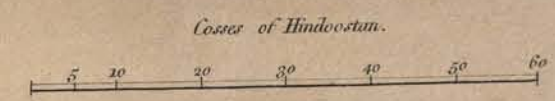 Cosses of Hindoostan.
5 10 20 30 40 50 60